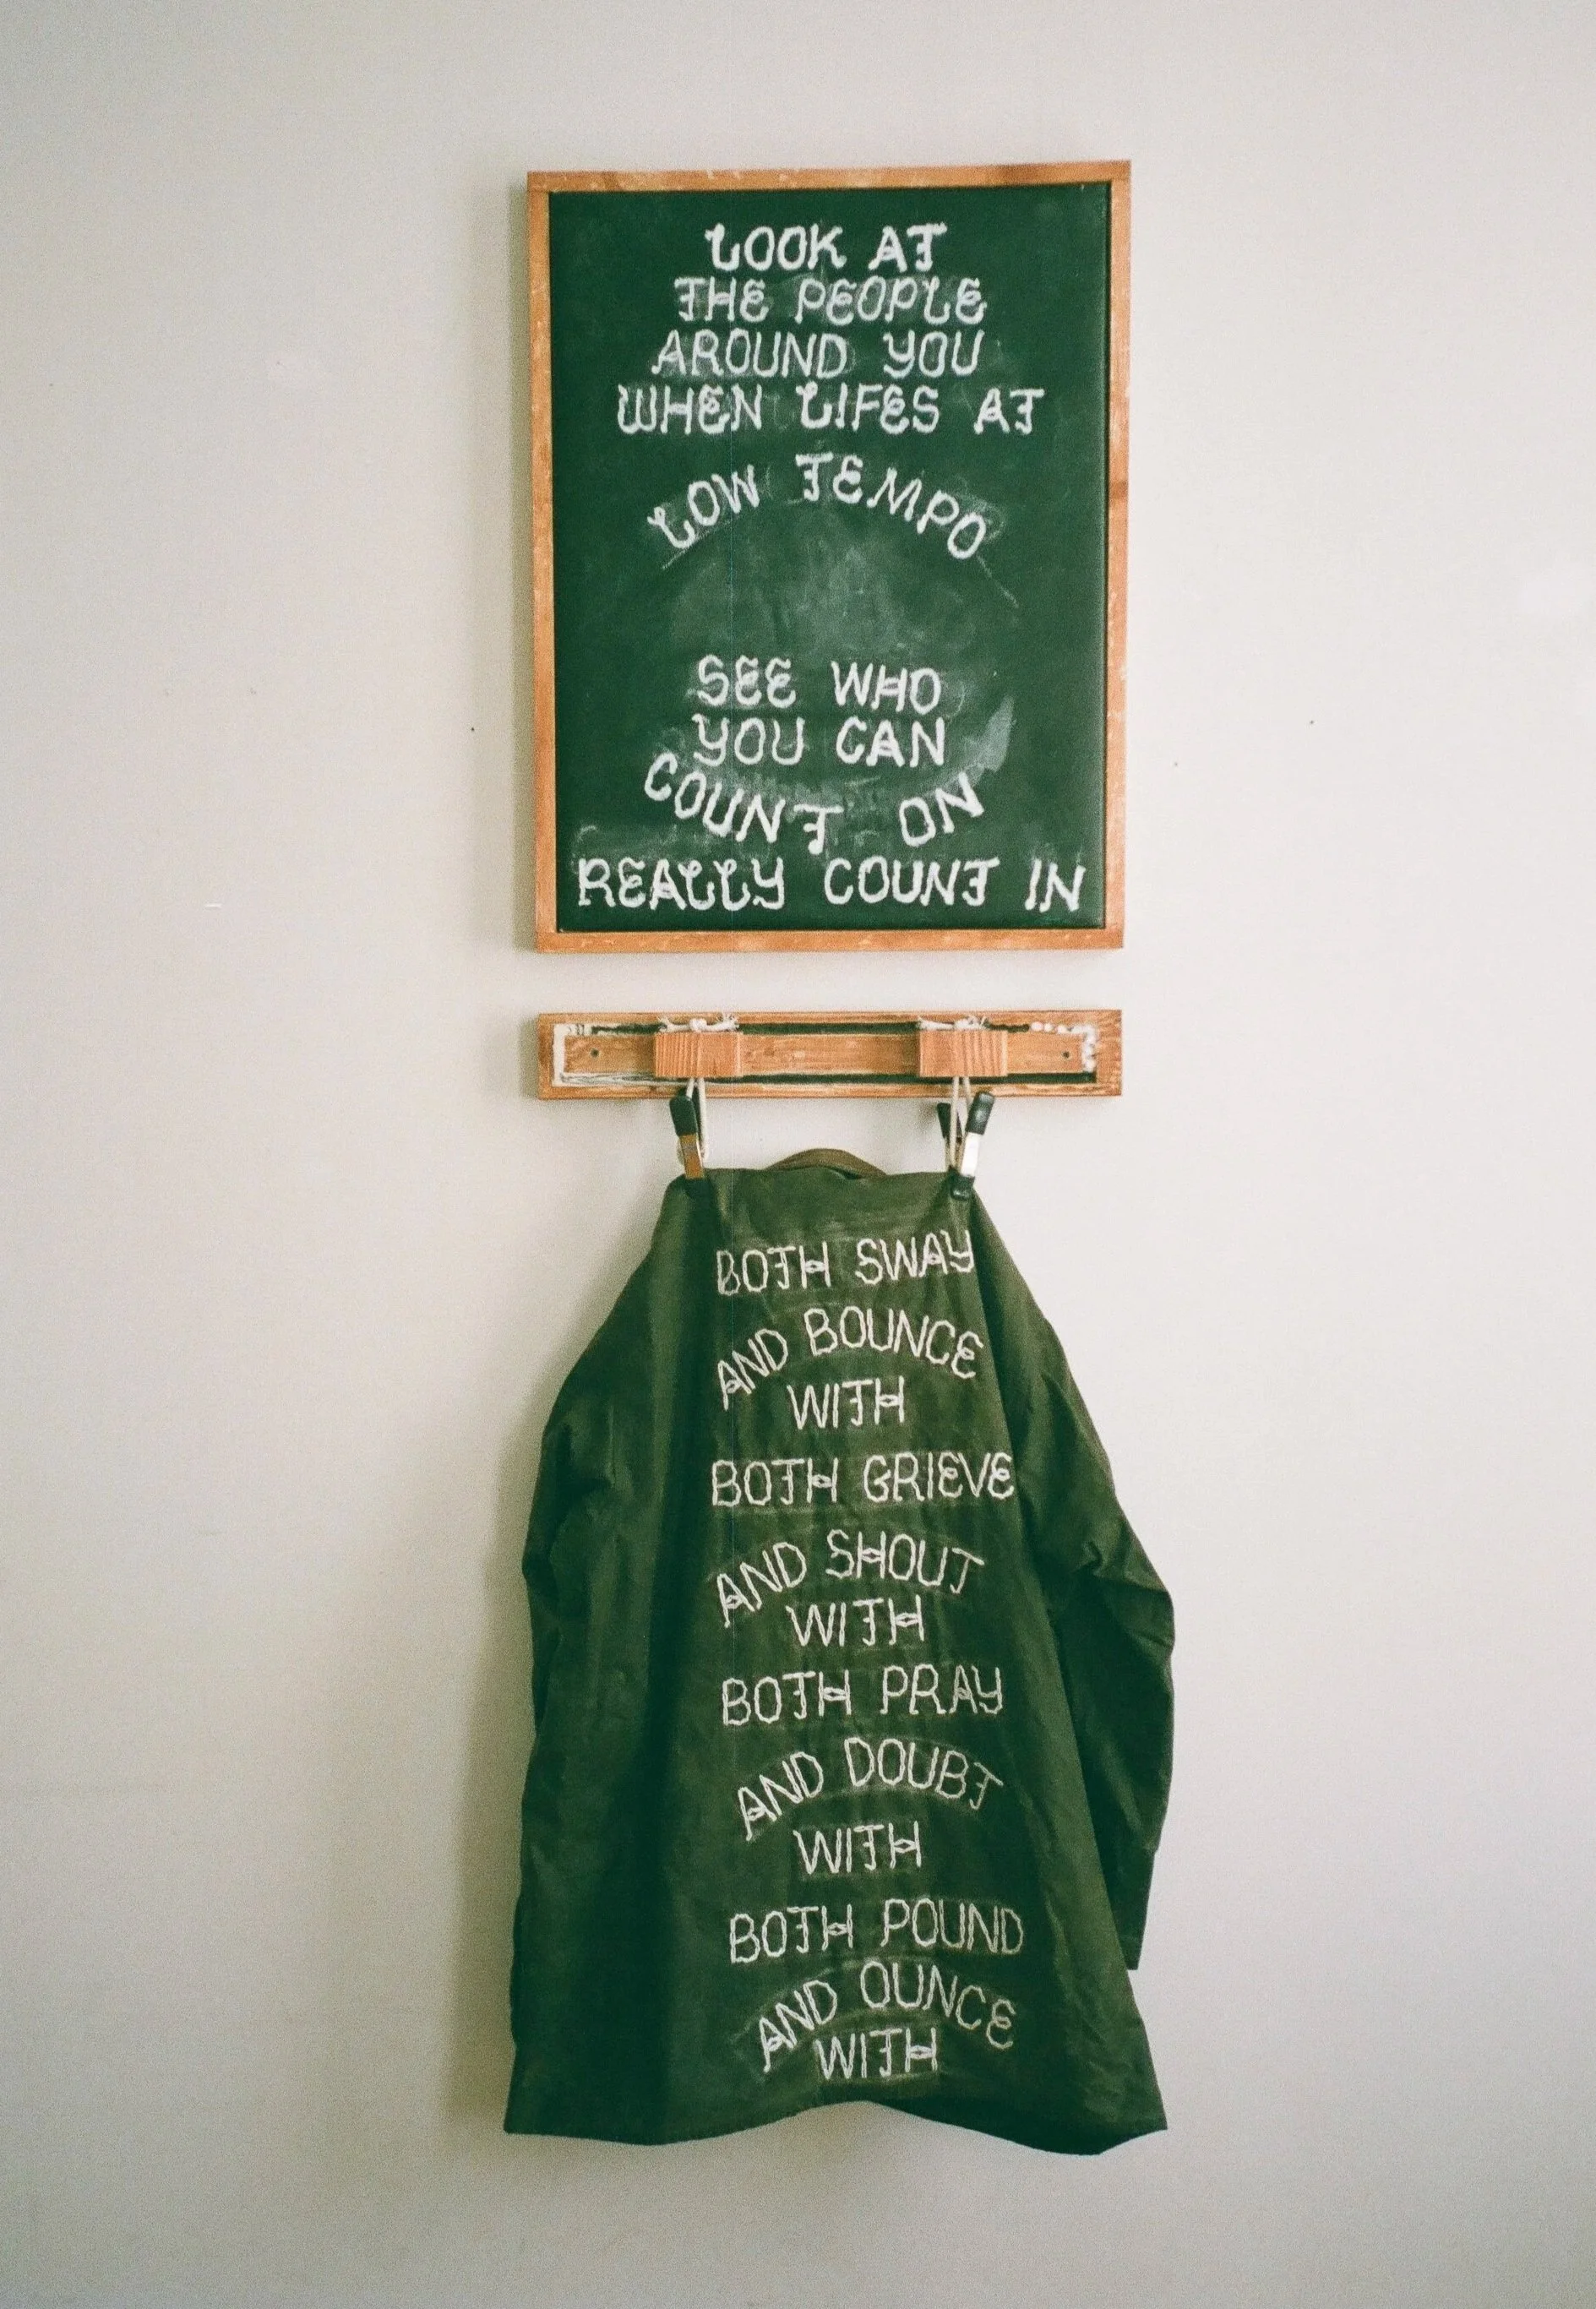 LOOK AT
THE PEOPLE
AROUND YOU
WHEN LIFES AT
LOW TEMPO
SEE WHO
YOU CAN
COUNT ON
REALLY COUNT IN
BOTH SWAY
AND BOUNCE
WITH
BOTH GRIEVE
AND SHOUT
WITH
BOTH PRAY
AND DOUBT
WITH
BOTH POUND
AND OUNCE
WITH